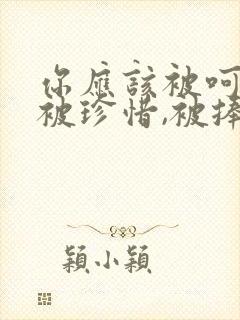 你應該被呵
被珍惜,被捧
穎小穎